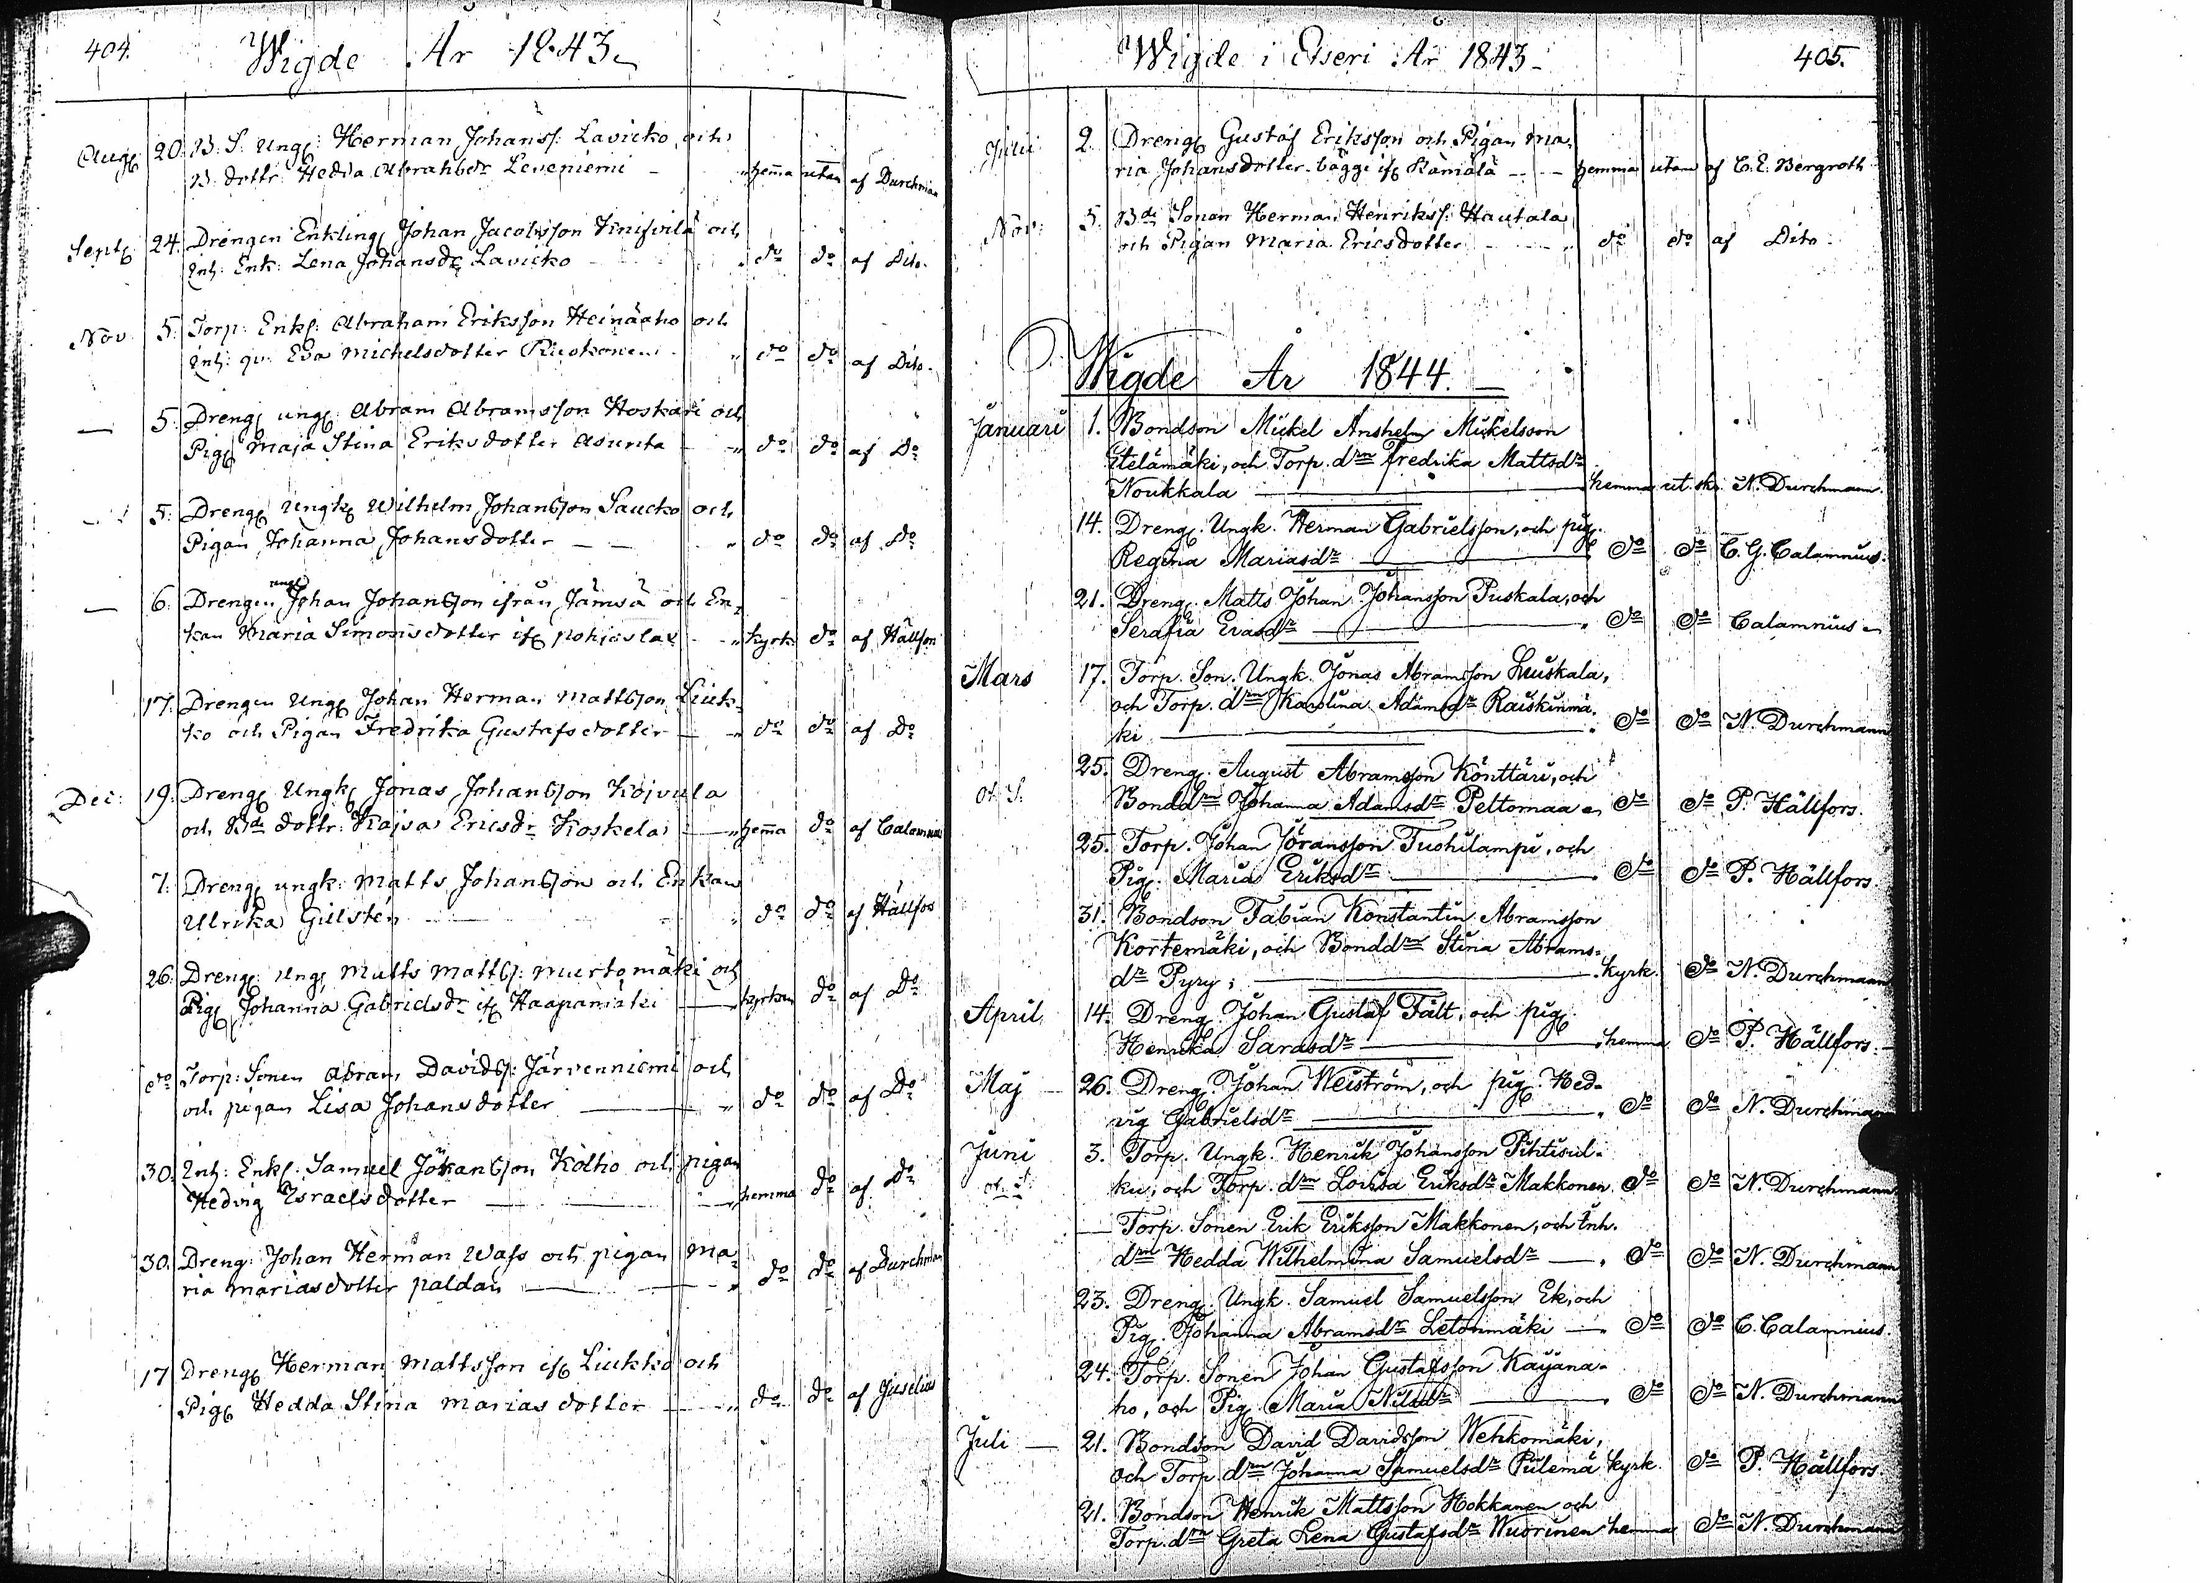 404. Wigde År 1843
Aug 20. B. S. Ung: Herman Johans: Lavicko, och
B. dottr: Hedda Abrahsdr Leveniemi hema utan af Durchman
Sept 24. Drengen Enkling Johan Jacobsson Knifvilä och
Inh: Enk: Lena Johansdr Lavicko do do af Dito.
Nov 5. Torp: Enkl: Abraham Eriksson Heinäaho och
Inh: qv. Eva Michelsdotter Rieskonen do do af Dito.
— 5. Dreng ung: Abram Abramsson Hoskari och
Pig Maja Stina Eriksdotter Asunta do do af Do
5. Dreng Ungk Wilhelm Johansson Saucko och
Pigan Johanna Johansdotter — — do do af Do
— 6. Drengen ungk Johan Johansson ifrån Jämsä och En-
kan Maria Simonsdotter if pohjaslax kyrk: do af Hällfors
17. Drengen Ung Johan Herman Mattsson Liuk-
ko och Pigan Fredrika Gustafsdotter do do af Do
Dec: 19. Dreng Ungk Jonas Johansson Kojvula
och Bde dottr: Kajsa Ericsdr Koskela hema do af Calamnius
7. Dreng ungk: Matts Johansson och Enkan
Ulrika Gillstén do do af Hällfos
26. Dreng Ung Matts Matts: Murtomäki och
Pig Johanna Gabrielsdr if Haapamäki kyrkan do af Do
do Torp: Sonen Abram Davids: Järvenniemi och
och pigan Lisa Johansdotter do do af Do
30. Inh: Enkl: Samuel Johansson Kolho och pigan
Hedvig Israelsdotter hemma do af Do
30. Dreng: Johan Herman Wass och pigan Ma-
ria Mariasdotter paldan do do af Durchman
17 Dreng Herman Mattsson if Liukko och
Pig Hedda Stina Mariasdotter do do af Juselius
Wigde i Etseri År 1843 405.
Julii 2. Dreng Gustaf Eriksson och Pigan Ma-
ria Johansdotter bägge if Kämälä — hemma utan af C. E. Bergroth
Nov: 5. Bde Sonen Herman Henriks: Hautala
och Pigan Maria Ericsdotter do do af Dito
Wigde År 1844.
Januari 1. Bondson Mickel Anshelm Mickelsson
Etelämäki, och Torp. drn Fredrika Mattsdr
Noukkala hemma ut. sk. N. Durchmann.
14. Dreng. Ungk. Herman Gabrielsson, och pig.
Regina Mariasdr do do C. G. Calamnius.
21. Dreng. Matts Johan Johansson Puskala, och
Serafia Evasdr do do Calamnius
Mars 17. Torp. Son. Ungk. Jonas Abramsson Luskala,
och Torp. drn Karolina Adamsdr Raiskinmä-
ki do do N. Durchmann
25. Dreng. August Abramsson Könttäri, och
Bonddrn Johanna Adamsdr Peltomaa do do P. Hällfors.
25. Torp. Johan Jöransson Tuohilampi, och
Pig. Maria Eriksdr do do P. Hällfors.
31. Bondson Fabian Konstantin Abramsson
Kortemäki, och Bonddrn Stina Abrams-
dr Pyry; kyrk. do N. Durchmann
April 14. Dreng. Johan Gustaf Fält, och pig.
Henrika Sarasdr hemma do P. Hällfors.
Maj — 26. Dreng. Johan Weiström, och pig. Hed-
vig Gabrielsdr do do N. Durchmann
Juni 3. Torp. Ungk. Henrik Johansson Pihtisul-
ku, och Torp. drn Lovisa Eriksdr Makkonen do do N. Durchmann
— Torp. Sonen Erik Eriksson Makkonen, och Inh.
drn Hedda Wilhelmina Samuelsdr — do do N. Durchmann
23. Dreng. Ungk. Samuel Samuelsson Ek, och
Pig. Johanna Abramsdr Letonmäki — do do C. Calamnius.
24. Torp. Sonen Johan Gustafsson Kayana-
ho, och Pig. Maria Nilsdr do do N. Durchmann
Juli — 21. Bondson David Davidsson Wehkomäki,
och Torp. drn Johanna Samuelsdr Pülemä kyrk. do P. Hällfors.
21. Bondson Henrik Mattsson Hokkanen och
Torp. drn Greta Lena Gustafsdr Wuorinen hemma do N. Durchmann